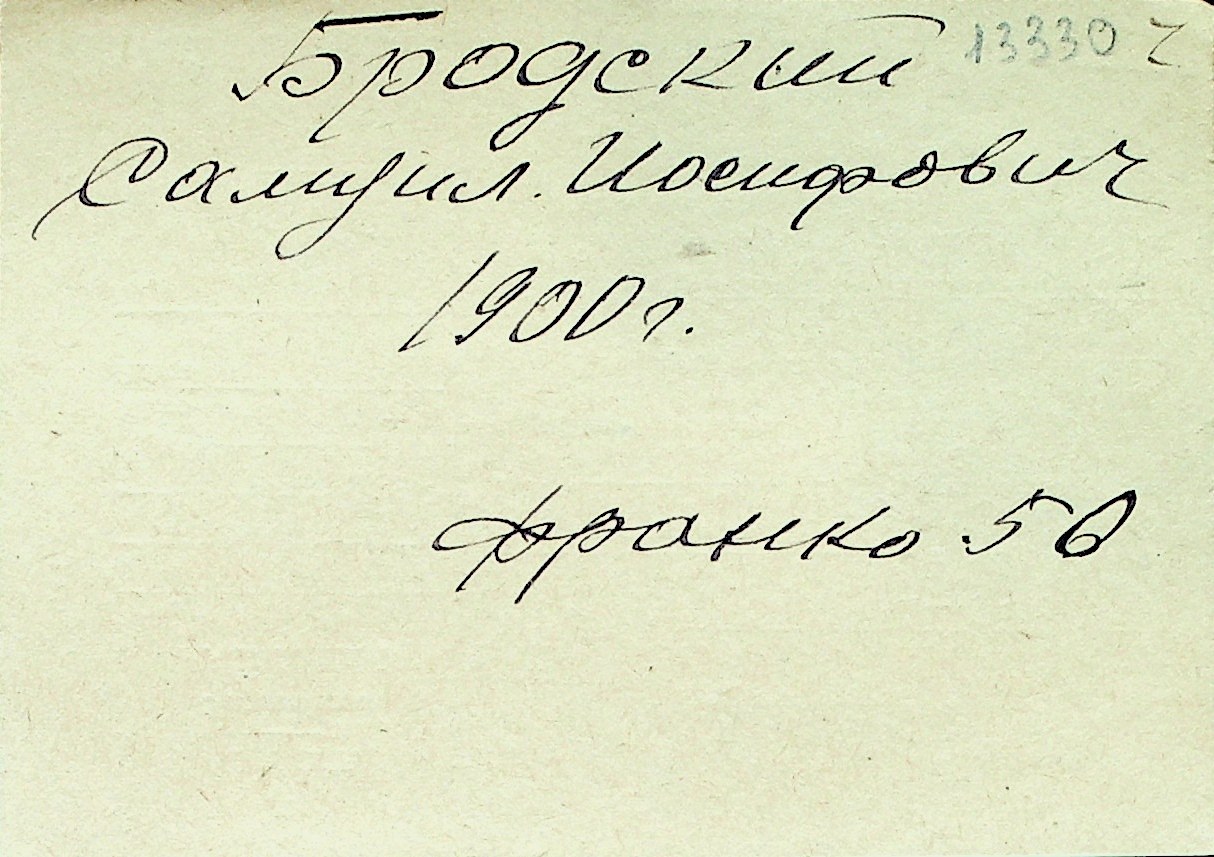 Бродский 13330 ч
Самуил. Иосифович
1900 г.
Франко 50